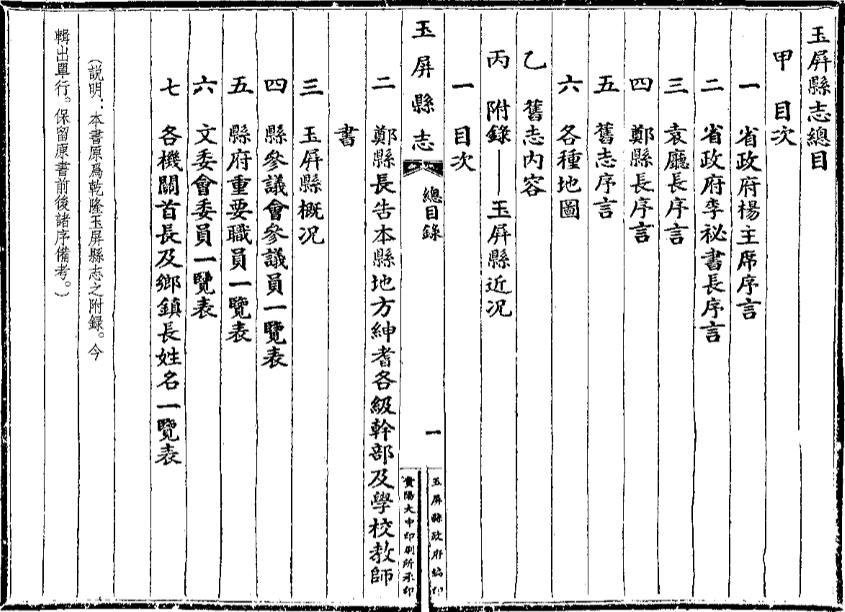 玉屏縣志總目
甲 目次
一 省政府楊主席序言
二 省政府李祕書長序言
三 袁廳長序言
四 鄭縣長序言
五 舊志序言
六 各種地圖
乙 舊志內容
丙 附錄——玉屏縣近況
一 目次
玉屏縣志 總目錄 一
玉屏縣政府編印
貴陽大中印刷所承印
二 鄭縣長告本縣地方紳耆各級幹部及學校教師
書
三 玉屏縣概況
四 縣參議會參議員一覽表
五 縣府重要職員一覽表
六 文委會委員一覽表
七 各機關首長及鄉鎮長姓名一覽表
（説明：本書原爲乾隆玉屏縣志之附録。今
輯出單行。保留原書前後諸序備考。）